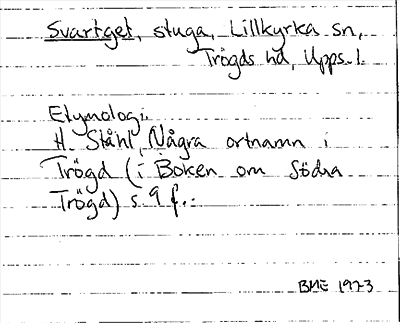 Svartget, stuga, Lillkyrka sn,
Trögds hd, Upps. l.
Etymologi:
H. Ståhl, Några ortnamn i
Trögd (i Boken om Södra
Trögd) s. 9 f.
BME 1973